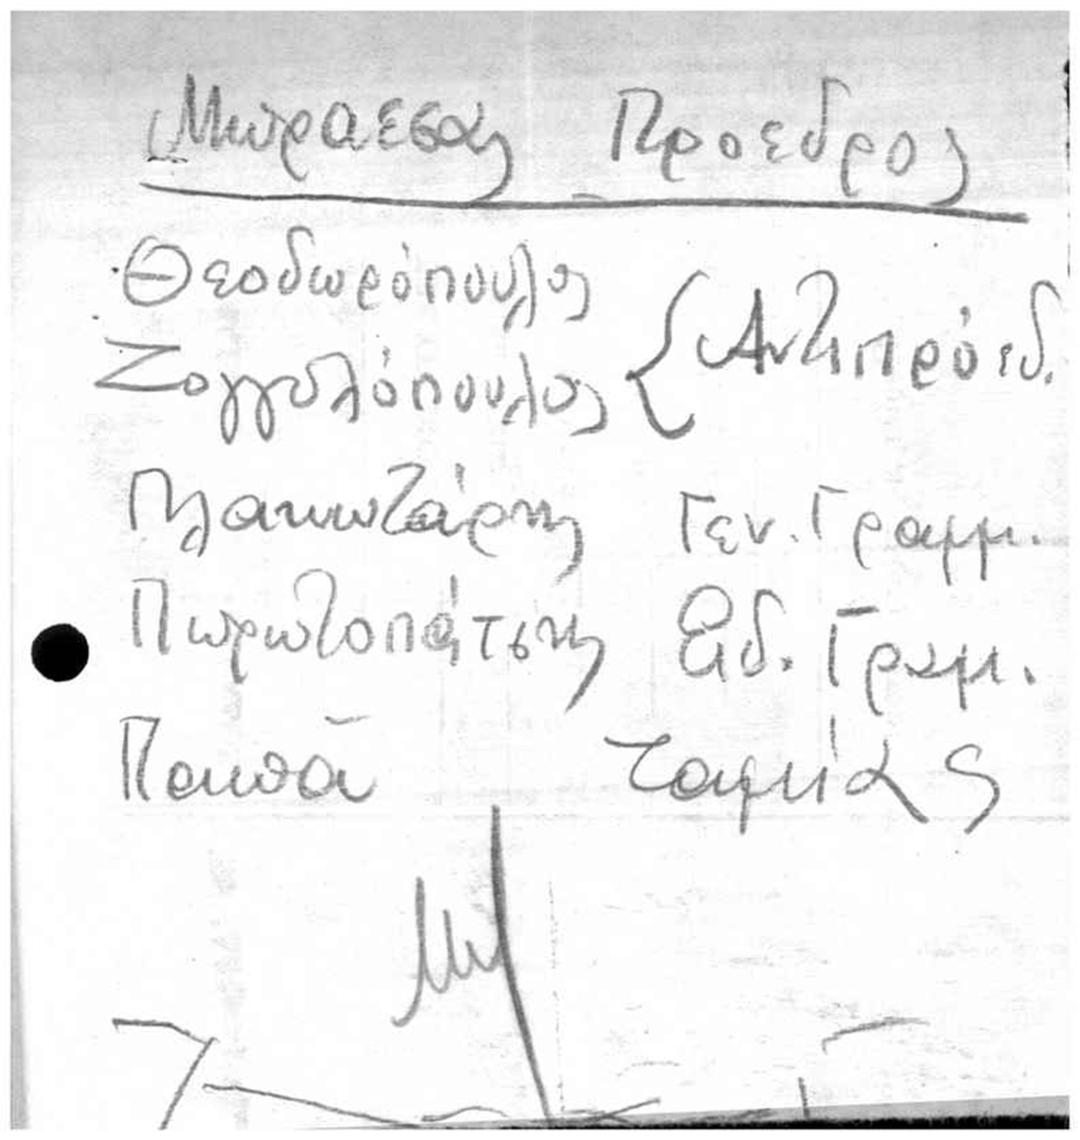 Μπραέσας Πρόεδρος
Θεοδωρόπουλος
Ζογγολόπουλος { Αντιπρόεδ.
Πλακωτάρης Γεν. Γραμμ.
Πωρωτοπάτσης Ειδ. Γραμ.
Παππᾶ ταμίας